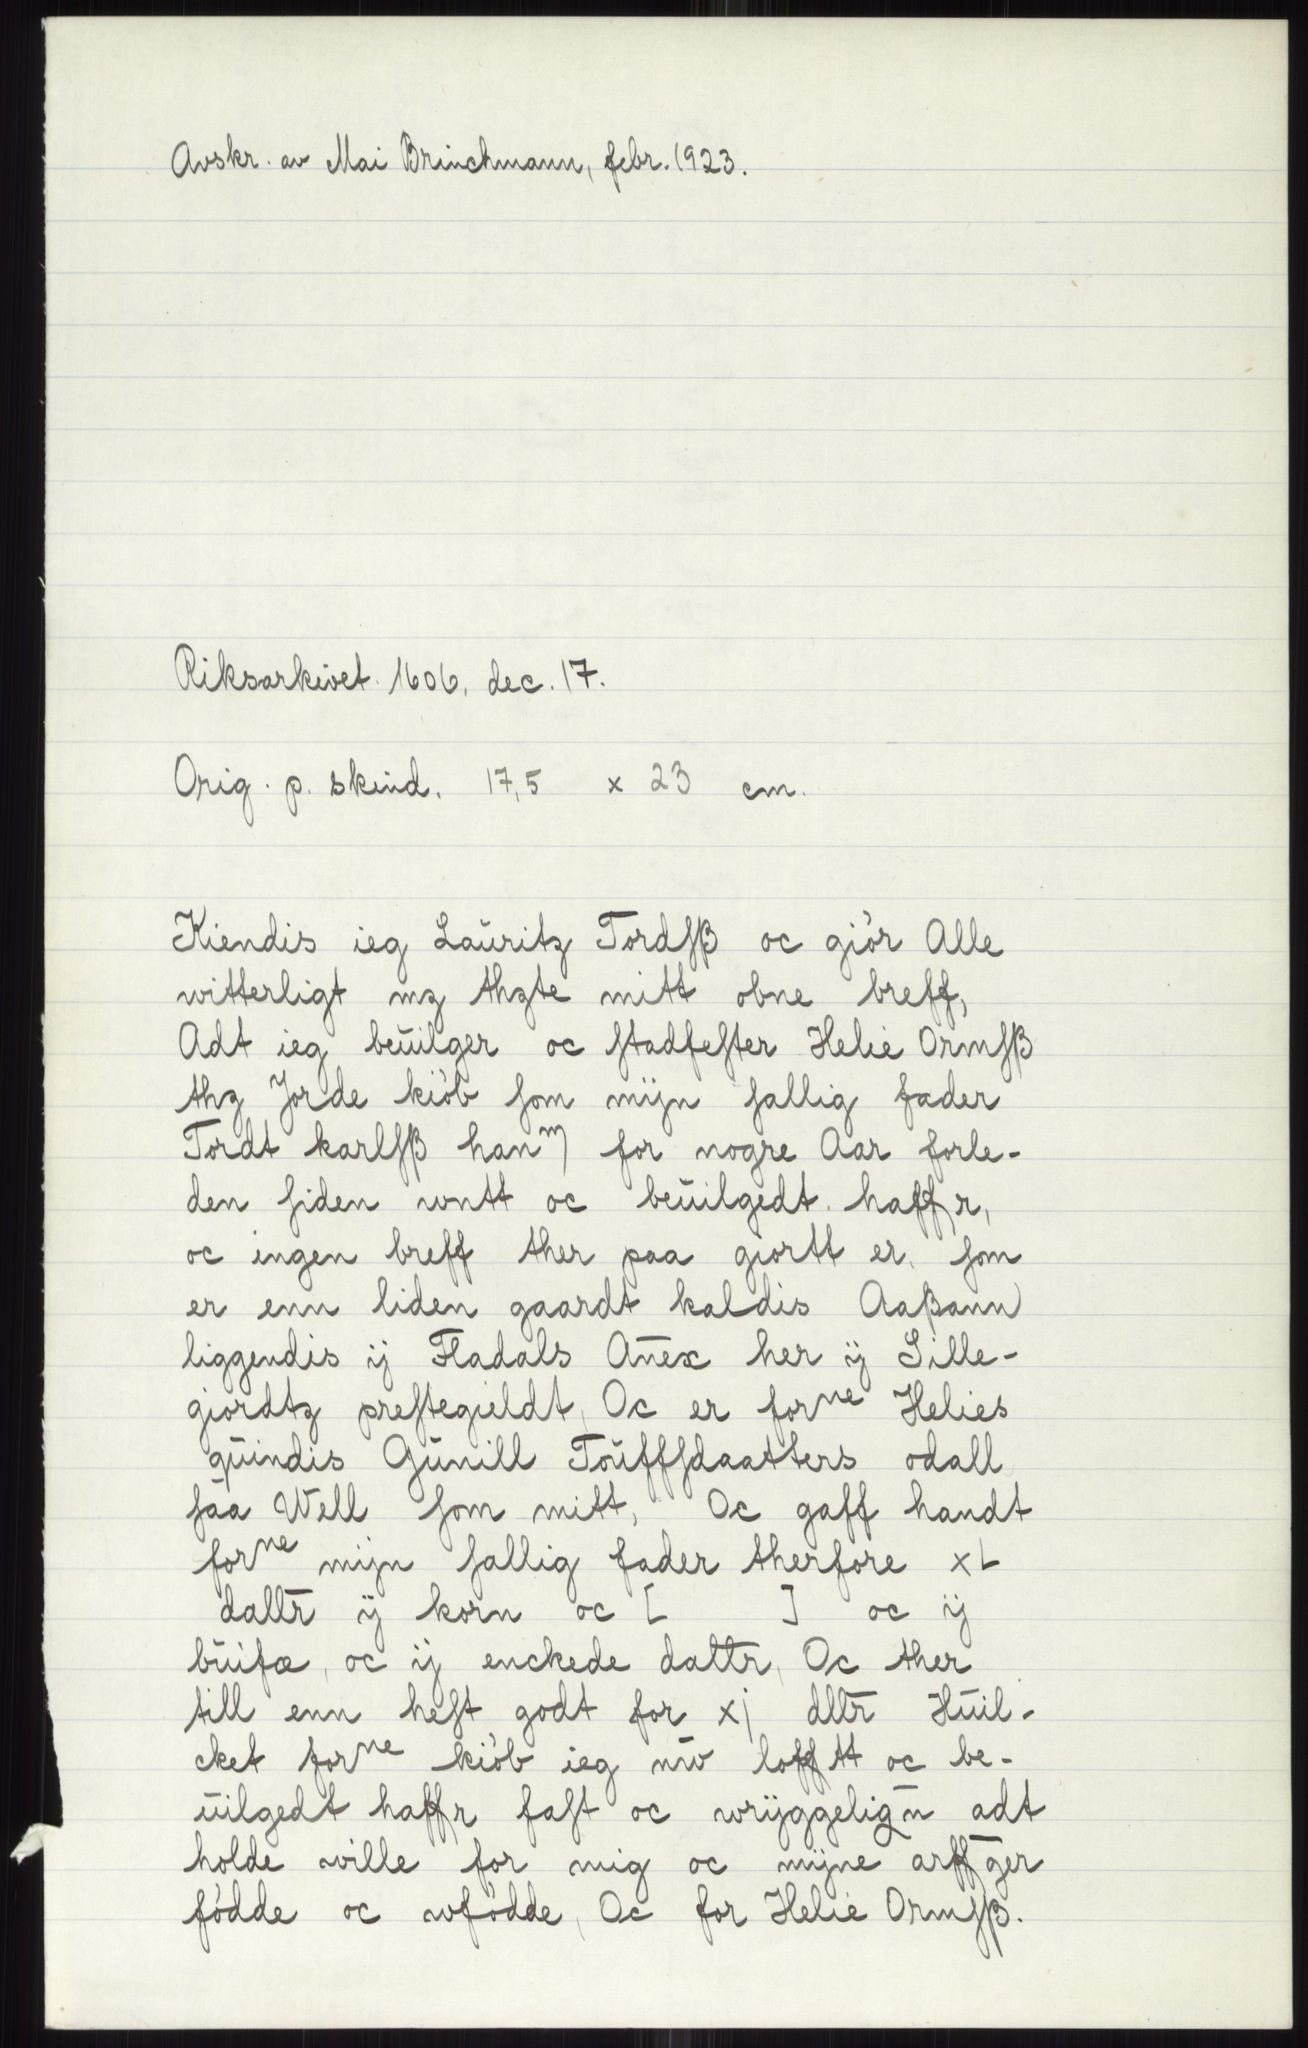 Avskr. av Mai Brinchmann, febr. 1923.
Riksarkivet. 1606. dec. 17.
Orig. p. skind. 17,5 x 23 cm.
Kiendis ieg Lauritz Tordſß oc giör Alle
witterligt mz thzte mitt obne breff,
Adt ieg beuilger oc ſtadfeſter Helie Ormſß
thz Jorde kiöb ſom mijn ſallig fader
Tordt karlſß hanᵐ for nogre Aar forle-
den ſiden wntt oc beuilgedt haffr,
oc ingen breff ther paa giortt er, ſom
er enn liden gaardt kaldis Aaßann
liggendis ij Fladals Anex her ij Sille-
giordtz preſtegieldt, Oc er forⁿᵉ Helies
quindis Gunill Touffſdaatters odall
ſaa Well ſom mitt, Oc gaff handt
forⁿᵉ mijn ſallig fader therfore xL
dallr ij korn oc [ ] oc ij
buifæ, oc ij enckede dallr, Oc ther
till enn heſt godt for xj dllr Huil-
cket forⁿᵉ kiöb ieg nw lofftt oc be-
uilgedt haffr faſt oc wryggelign adt
holde wille for mig oc mijne arffger
födde oc wfödde, Oc for Helie Ormſß.